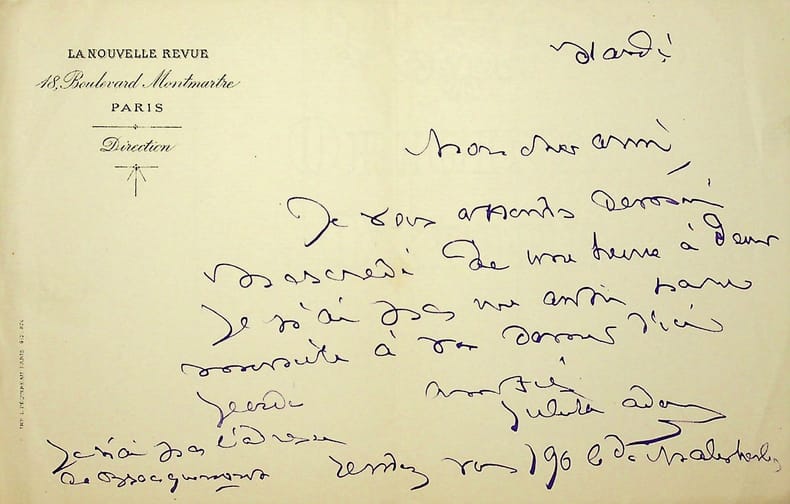 LA NOUVELLE REVUE
18, Boulevard Montmartre
PARIS
Direction
Mardi
Mon cher ami,
Je vous attends demain
Mercredi de une heure à deux
Je n'ai pas une autre
à vous donner d'ici
jeudi
amitié
Juliette Adam
Je n'ai pas l'adresse
de
rendez vous 190 b de Malesherbes